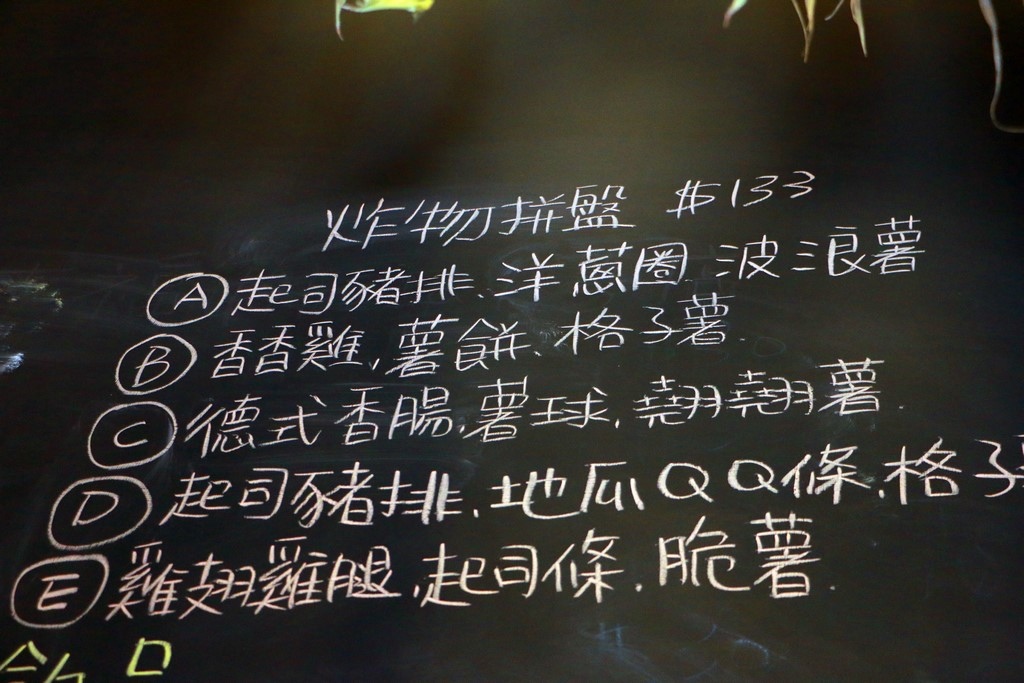 炸物拼盤 $133
Ⓐ起司豬排、洋蔥圈、波浪薯
Ⓑ香香雞、薯餅、格子薯.
Ⓒ德式香腸、薯球、翹翹薯.
Ⓓ起司豬排、地瓜QQ條、格子
Ⓔ雞翅雞腿、起司條、脆薯.
品